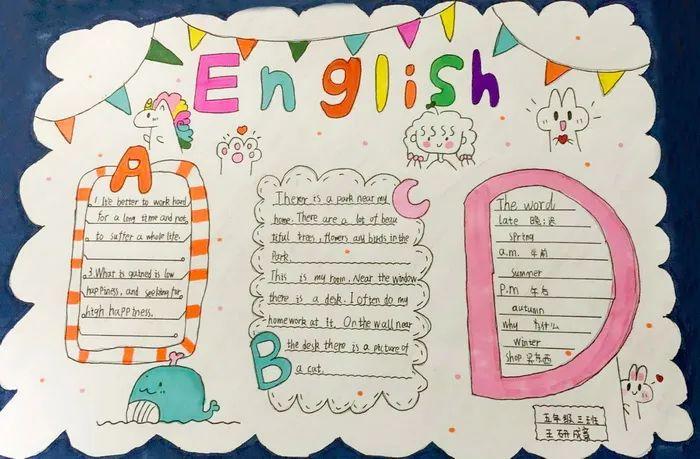 English
A
1 It's better to work hard
for a long time and not
to suffer a whole life.
3. What is gained is low
happiness, and seeking for
high happiness.
C
There is a park near my
home. There are a lot of beau
tiful trees, flowers any birds in the
Park.
This is my room. Near the window
there is a desk. I often do my
homework at it. On the wall near
the desk there is a picture of
a cat.
B
D
The word
late 晚;迟
spring
a.m. 午前
summer
P.m 午后
autumn
why 为什么
winter
shop 买东西
五年级三班
王研成